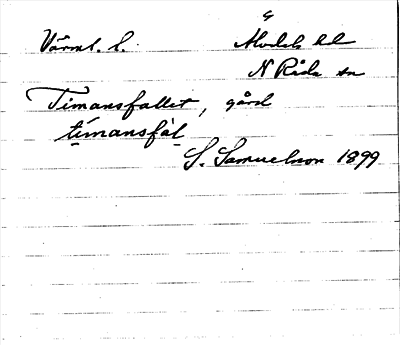 Värml. l. Älvdals hd
N Råda sn
Timansfallet, gård
timansfal
S. Samuelsson 1899